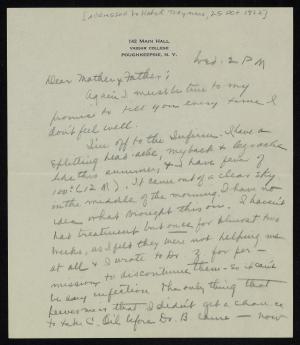 [addressed to Mabel Raymers, 25 Oct 1922]
142 MAIN HALL
VASSAR COLLEGE
POUGHKEEPSIE, N. Y.
Wed. 2 P M
Dear Mother & Father;
Again I must be true to my
promise to tell you every time I
don't feel well.
I'm off to the Infirm. I have a
splitting head-ache, my back & legs ache
like this summer, & I have fever of
100° (12 M). It came out of a clear sky
in the middle of the morning. I have no
idea what brought this on. I haven't
had treatment but once for almost two
weeks, as I felt they were not helping me
at all & I wrote to Dr. Z for per-
mission to discontinue them - so it can't
be any infection. The only thing that
peeves me is that I didn't get a chance
to take C. Oil before Dr. B. came - now